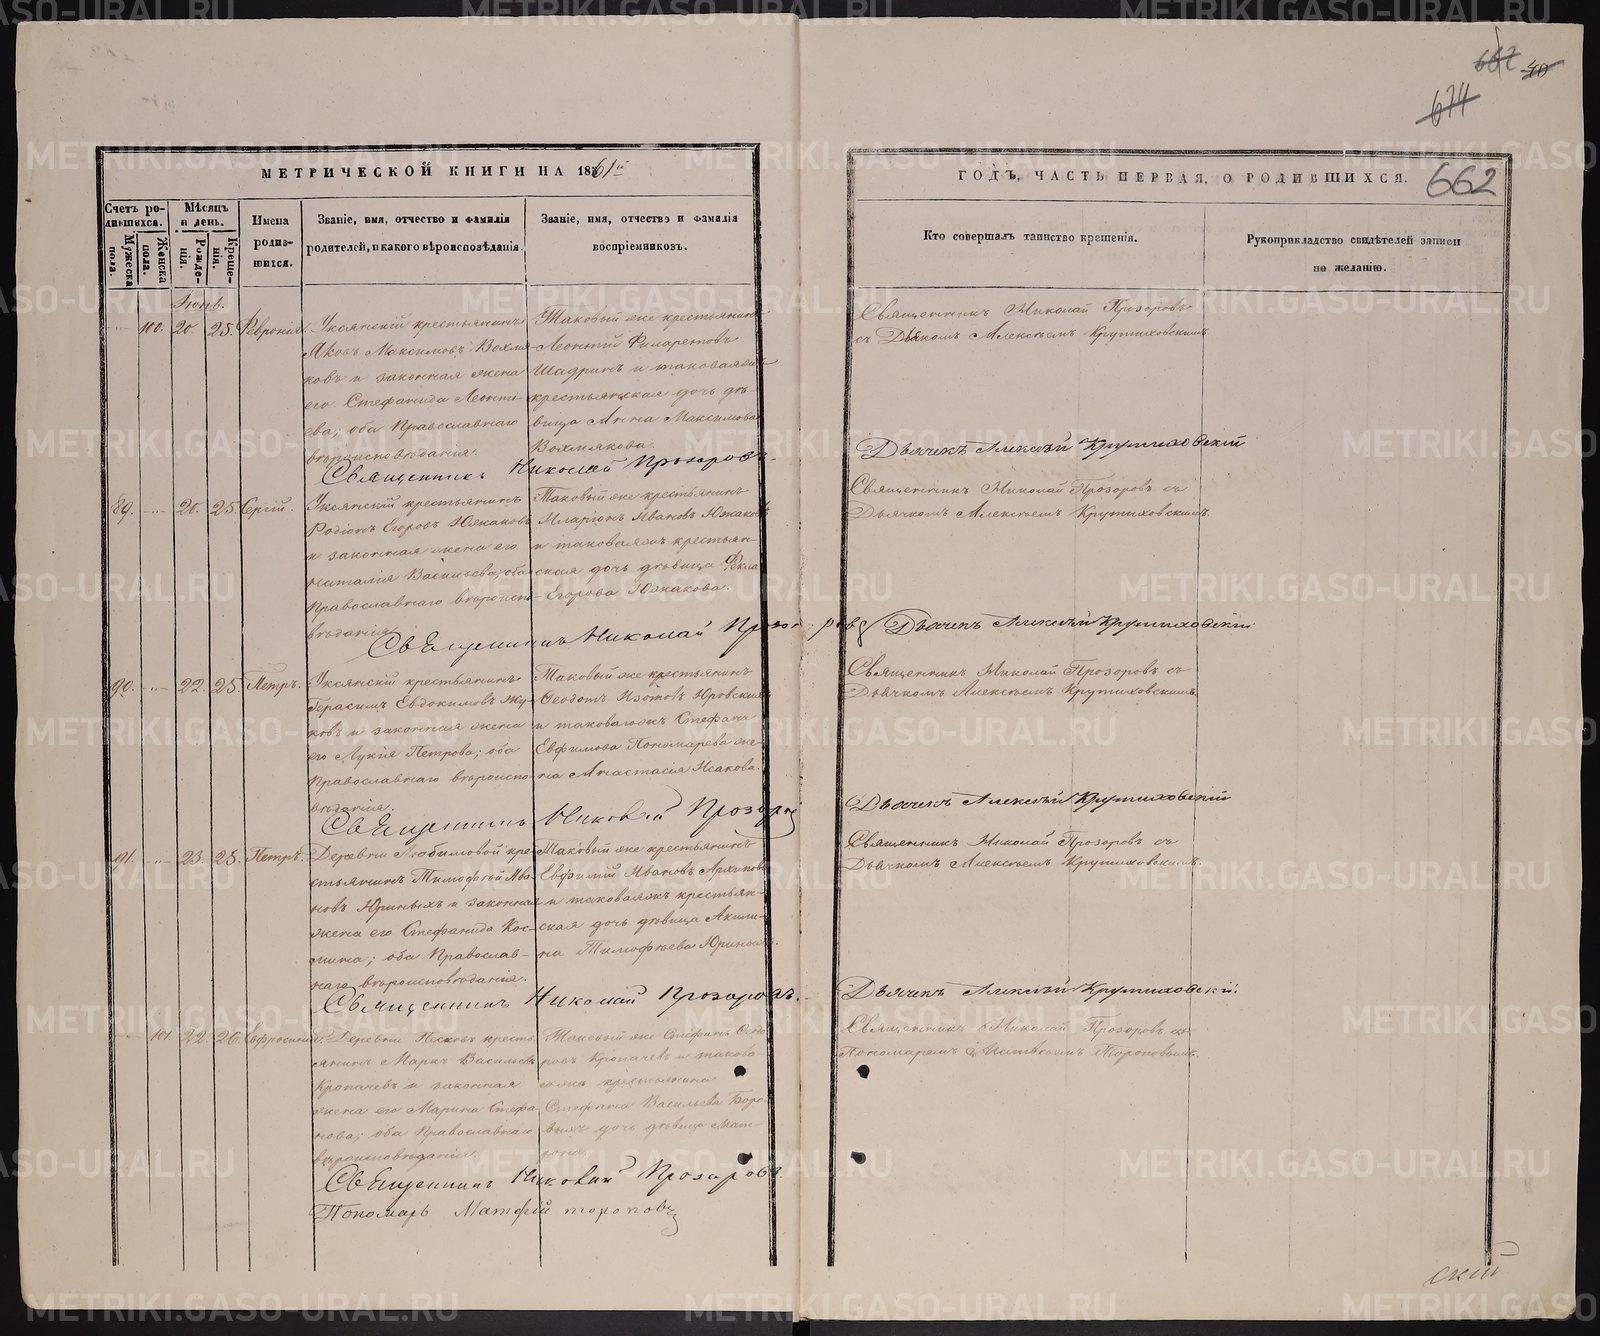 667 40
674
МЕТРИЧЕСКОЙ КНИГИ НА 1861й
ГОДЪ, ЧАСТЬ ПЕРВАЯ, О РОДИВШИХСЯ.
662
Счетъ ро-
дившихся.
Мужеска
пола.
Женска
пола.
Мѣсяцъ
и день.
Рожде-
нія.
Креще-
нія.
Имена
родив-
шихся.
Званіе, имя, отчество и фамилія
родителей, и какого вѣроисповѣданія.
Званіе, имя, отчество и фамилія
воспріемниковъ.
Кто совершалъ таинство крещенія.
Рукоприкладство свидѣтелей записи
по желанію.
Іюнь.
100. 20. 25. Феврониія.
Уксянскій крестьянинъ
Яковъ Максимовъ Вохмя-
ковъ и законная жена
его Стефанида Леонті-
ева; оба Православнаго
вѣроисповѣданія.
Таковый же крестьянинъ
Леонтій Филаретовъ
Шадринъ и таковая же
крестьянская дочь дѣ-
вица Анна Максимова
Вохмякова.
Священникъ Николай Прозоровъ
съ Дьячкомъ Алексѣемъ Крутиховскимъ
Священникъ Николай Прозоровъ
Дьячекъ Алексѣй Крутиховскій
89. 20. 25. Сергій.
Уксянскій крестьянинъ
Родіонъ Егоровъ Южаковъ
и законная жена его
Наталія Васильева; оба
Православнаго вѣроиспо-
вѣданія.
Таковый же крестьянинъ
Иларіонъ Ивановъ Южаковъ
и таковая жъ крестьян-
ская дочь дѣвица Фекла
Егорова Южакова.
Священникъ Николай Прозоровъ съ
Дьячкомъ Алексѣемъ Крутиховскимъ.
Священникъ Николай Прозоровъ
Дьячекъ Алексѣй Крутиховскій
90. 22. 25. Петръ.
Уксянскій крестьянинъ
Герасимъ Евдокимовъ Жу-
ковъ и законная жена
его Лукія Петрова; оба
Православнаго вѣроиспо-
вѣданія.
Таковый же крестьянинъ
Ѳеодотъ Изотовъ Юровскихъ
и таковагожъ Стефана
Евфимова Пономарева же-
на Анастасія Исакова.
Священникъ Николай Прозоровъ съ
Дьячкомъ Алексѣемъ Крутиховскимъ.
Священникъ Николай Прозоровъ
Дьячекъ Алексѣй Крутиховскій
91. 23. 25. Петръ.
Деревни Любимовой кре-
стьянинъ Тимофѣй Ива-
новъ Юриныхъ и законная
жена его Стефанида Кос-
мина; оба Православ-
наго вѣроисповѣданія.
Таковый же крестьянинъ
Евфимій Ивановъ
и таковая жъ крестьян-
ская дочь дѣвица Акили-
на Тимофѣева Юриныхъ.
Священникъ Николай Прозоровъ съ
Дьячкомъ Алексѣемъ Крутиховскимъ.
Священникъ Николай Прозоровъ.
Дьячекъ Алексѣй Крутиховскій.
101. 22. 26. Евфросинія.
Деревни Песковъ кресть-
янинъ Маркъ Васильевъ
Кропачевъ и законная
жена его Марина Стефа-
нова; оба Православнаго
вѣроисповѣданія.
Таковый же Стефанъ Ѳедо-
ровъ Кропачевъ и такова-
гожъ крестьянина
Стефана Васильева Боро-
выхъ дочь дѣвица Мат-
рона.
Священникъ Николай Прозоровъ съ
Пономаремъ Матвѣемъ Тороповымъ.
Священникъ Николай Прозоровъ.
Пономарь Матфій Тороповъ
скій